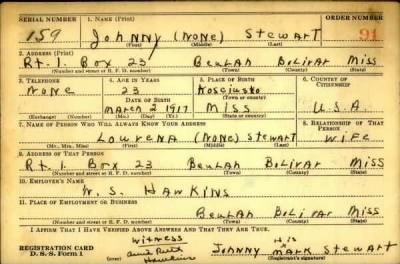 SERIAL NUMBER 1. NAME (Print) ORDER NUMBER
159 Johnny (None) Stewart 91
(First) (Middle) (Last)
2. ADDRESS (Print)
Rt. 1. Box 23 Beulah Bolivar Miss
(Number and street or R. F. D. number) (Town) (County) (State)
3. TELEPHONE 4. AGE IN YEARS 5. PLACE OF BIRTH 6. COUNTRY OF CITIZENSHIP
None 23 Kosciusko
DATE OF BIRTH (Town or county)
March 2 1917 Miss U.S.A.
(Exchange) (Number) (Mo.) (Day) (Yr.) (State or country)
7. NAME OF PERSON WHO WILL ALWAYS KNOW YOUR ADDRESS 8. RELATIONSHIP OF THAT PERSON
Lowrena (None) Stewart Wife
(Mr., Mrs., Miss) (First) (Middle) (Last)
9. ADDRESS OF THAT PERSON
Rt. 1. Box 23 Beulah Bolivar Miss
(Number and street or R. F. D. number) (Town) (County) (State)
10. EMPLOYER'S NAME
W. S. Hawkins
11. PLACE OF EMPLOYMENT OR BUSINESS
Beulah Bolivar Miss
(Number and street or R. F. D. number) (Town) (County) (State)
I AFFIRM THAT I HAVE VERIFIED ABOVE ANSWERS AND THAT THEY ARE TRUE.
Witness His
Ruth Johnny Mark Stewart
Hawkins
REGISTRATION CARD
D. S. S. Form 1 (Registrant's signature)